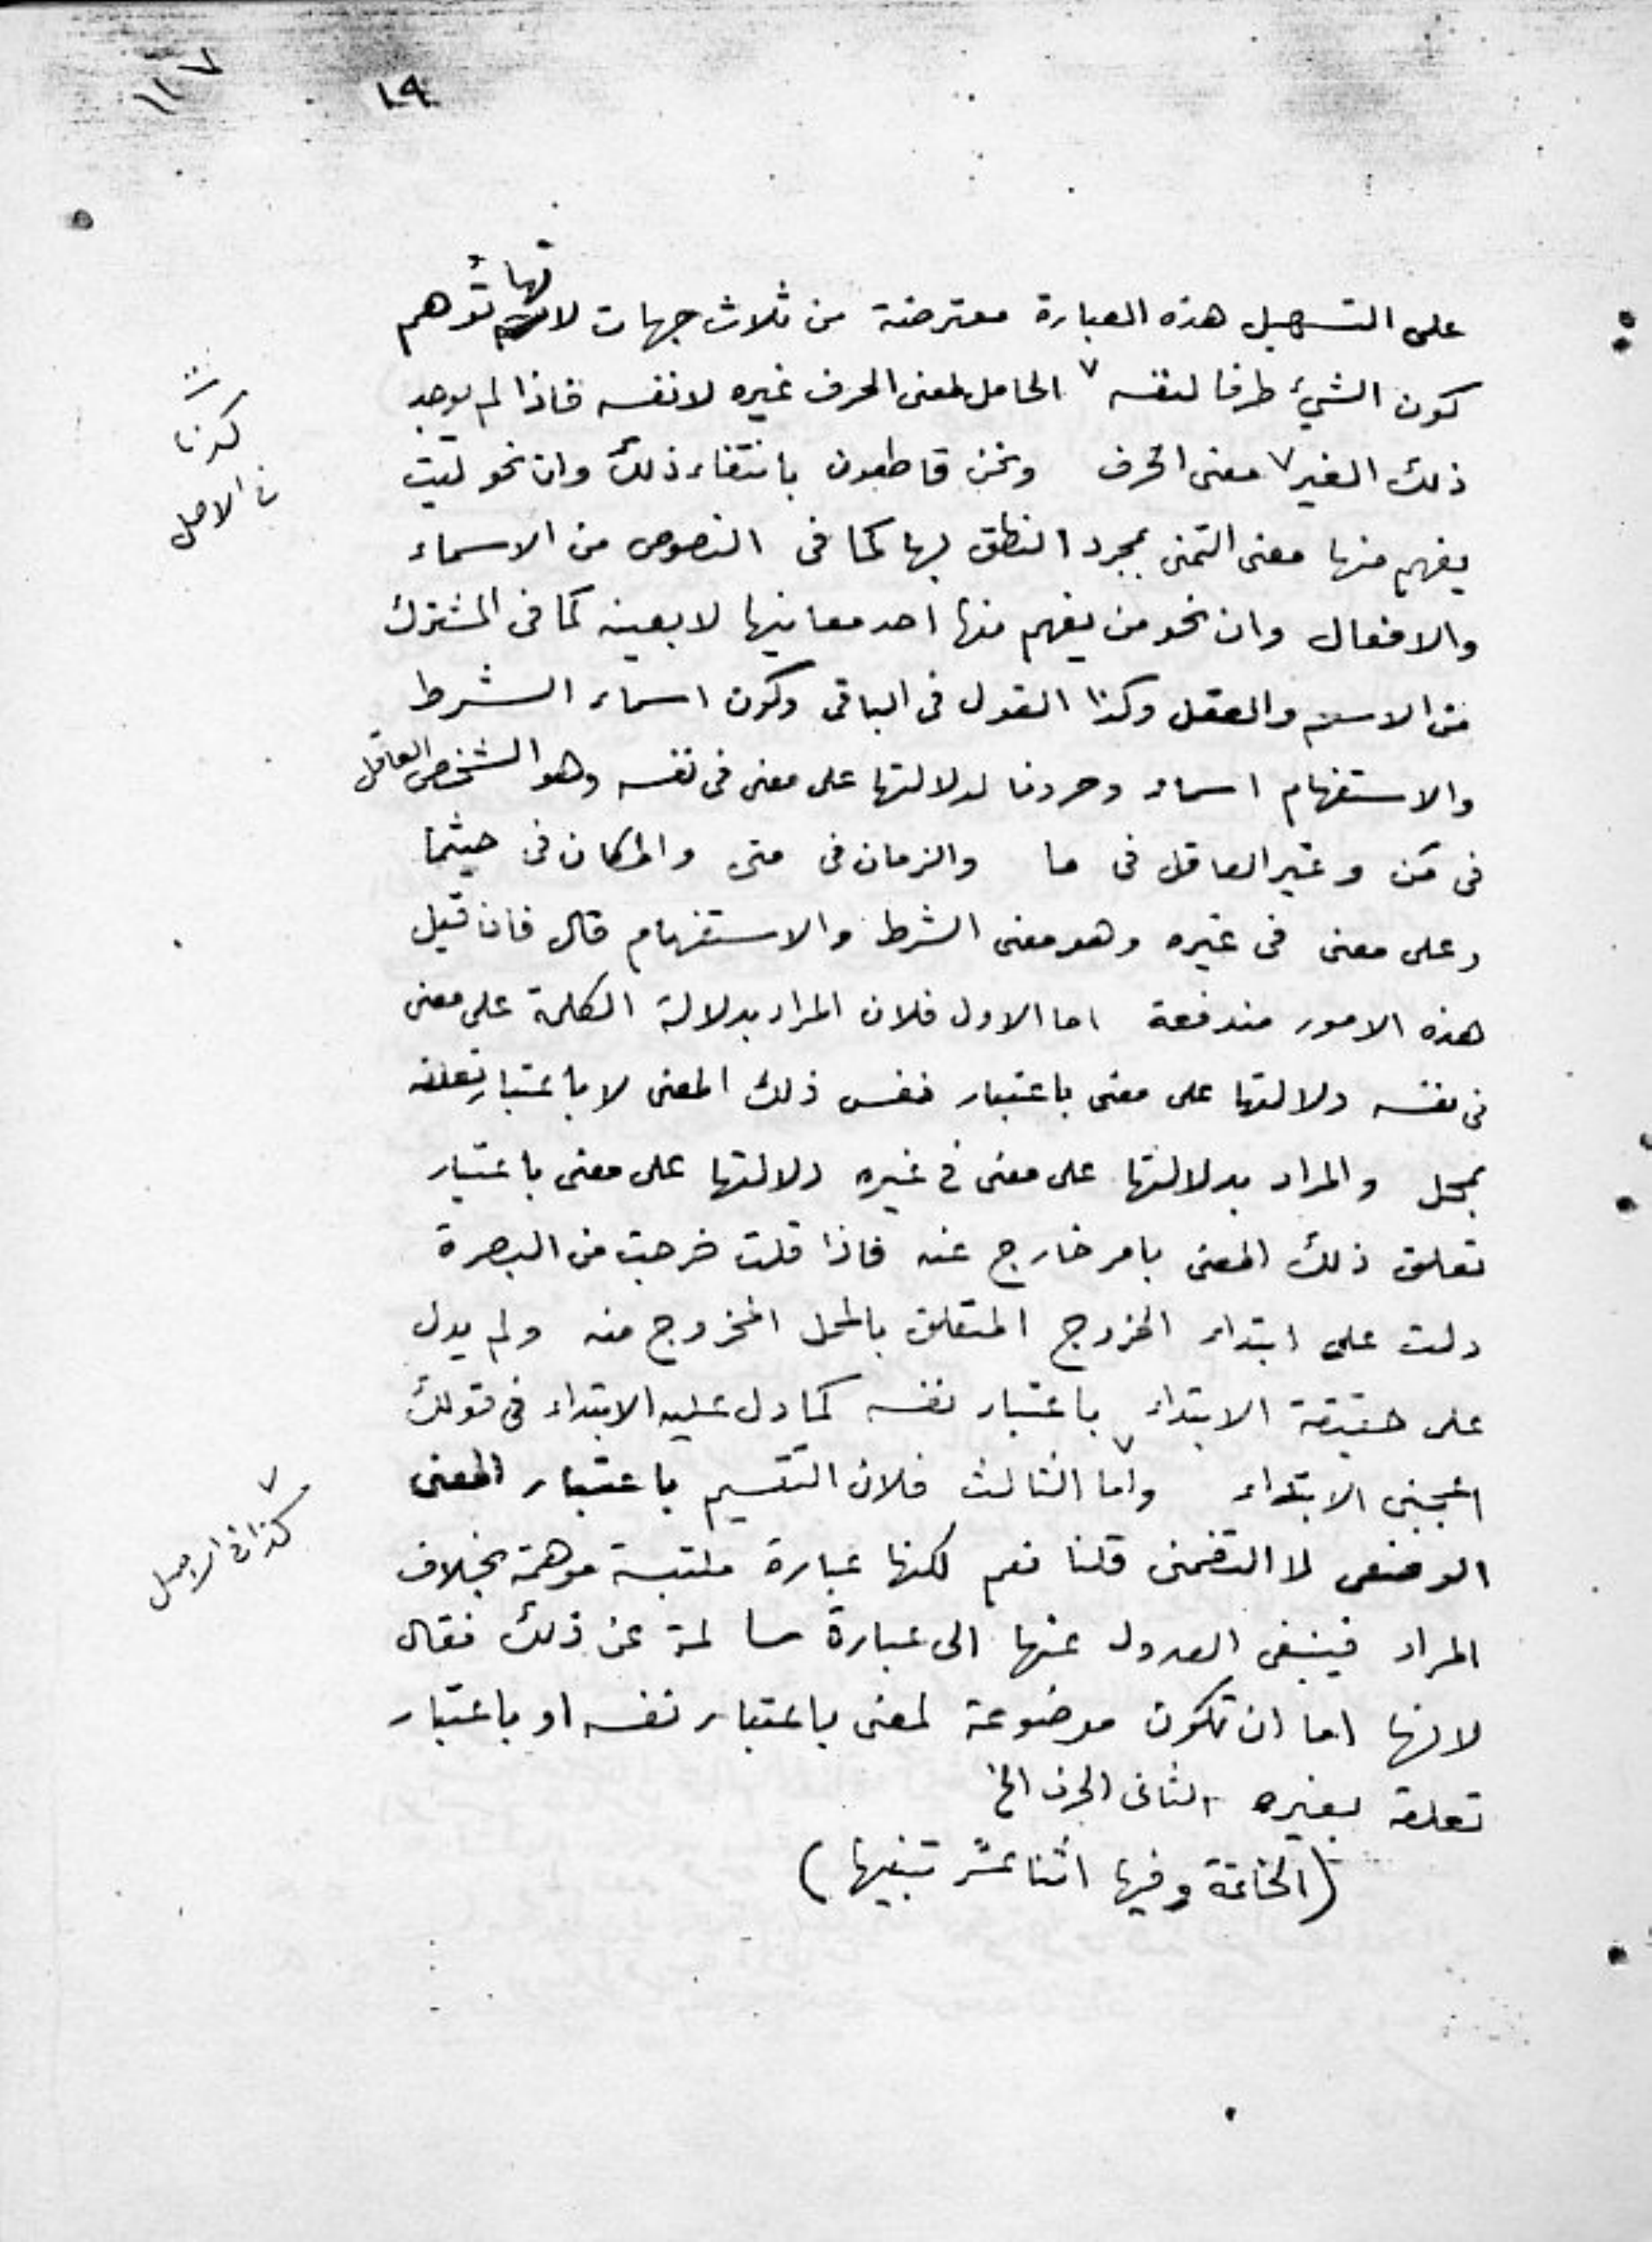 ١١٧
١٩
على التسهيل هذه العبارة معترضة من ثلاث جهات لانها توهم
كون الشيء ظرفا لنفسه ٧ الحامل لمعنى الحرف غيره لا نفسه فاذا لم يوجد
ذلك الغير ٧ معنى الحرف ونحن قاطعون بانتفاء ذلك وان نحو ليت
يفهم منها معنى التمنى بمجرد النطق بها كما فى النصوص من الاسماء
والافعال وان نحو من يفهم منها احد معانيها لا بعينه كما فى المشترك
من الاسم والفعل وكذا القول فى الباقى وكون اسماء الشرط
والاستفهام اسماء وحروفا لدلالتها على معنى فى نفسه وهو الشخص العاقل
فى مَن وغير العاقل فى ما والزمان فى متى والمكان فى حيثما
وعلى معنى فى غيره وهو معنى الشرط والاستفهام قال فان قيل
هذه الامور مندفعة اما الاول فلان المراد بدلالة الكلمة على معنى
فى نفسه دلالتها على معنى باعتبار نفس ذلك المعنى لا باعتبار تعلقه
بمحل والمراد بدلالتها على معنى فى غيره دلالتها على معنى باعتبار
تعلق ذلك المعنى بامر خارج عنه فاذا قلت خرجت من البصرة
دلت على ابتداء الخروج المتعلق بالمحل المخروج منه ولم يدل
على حقيقة الابتداء باعتبار نفسه كما دل عليه الابتداء فى قولك
اعجبنى الابتداء ٧ واما الثالث فلان التقسيم باعتبار المعنى
الوضعى لا التضمنى قلنا نعم لكنها عبارة ملتبسة موهمة بخلاف
المراد فينبغى العدول عنها الى عبارة سالمة عن ذلك فقال
لانها اما ان تكون موضوعة لمعنى باعتبار نفسه او باعتبار
تعلقه بغيره الثانى الحرف الخ
(الخاتمة وفيها اثنا عشر تنبيها)
كذا
فى الاصل
٧
كذا فى الاصل